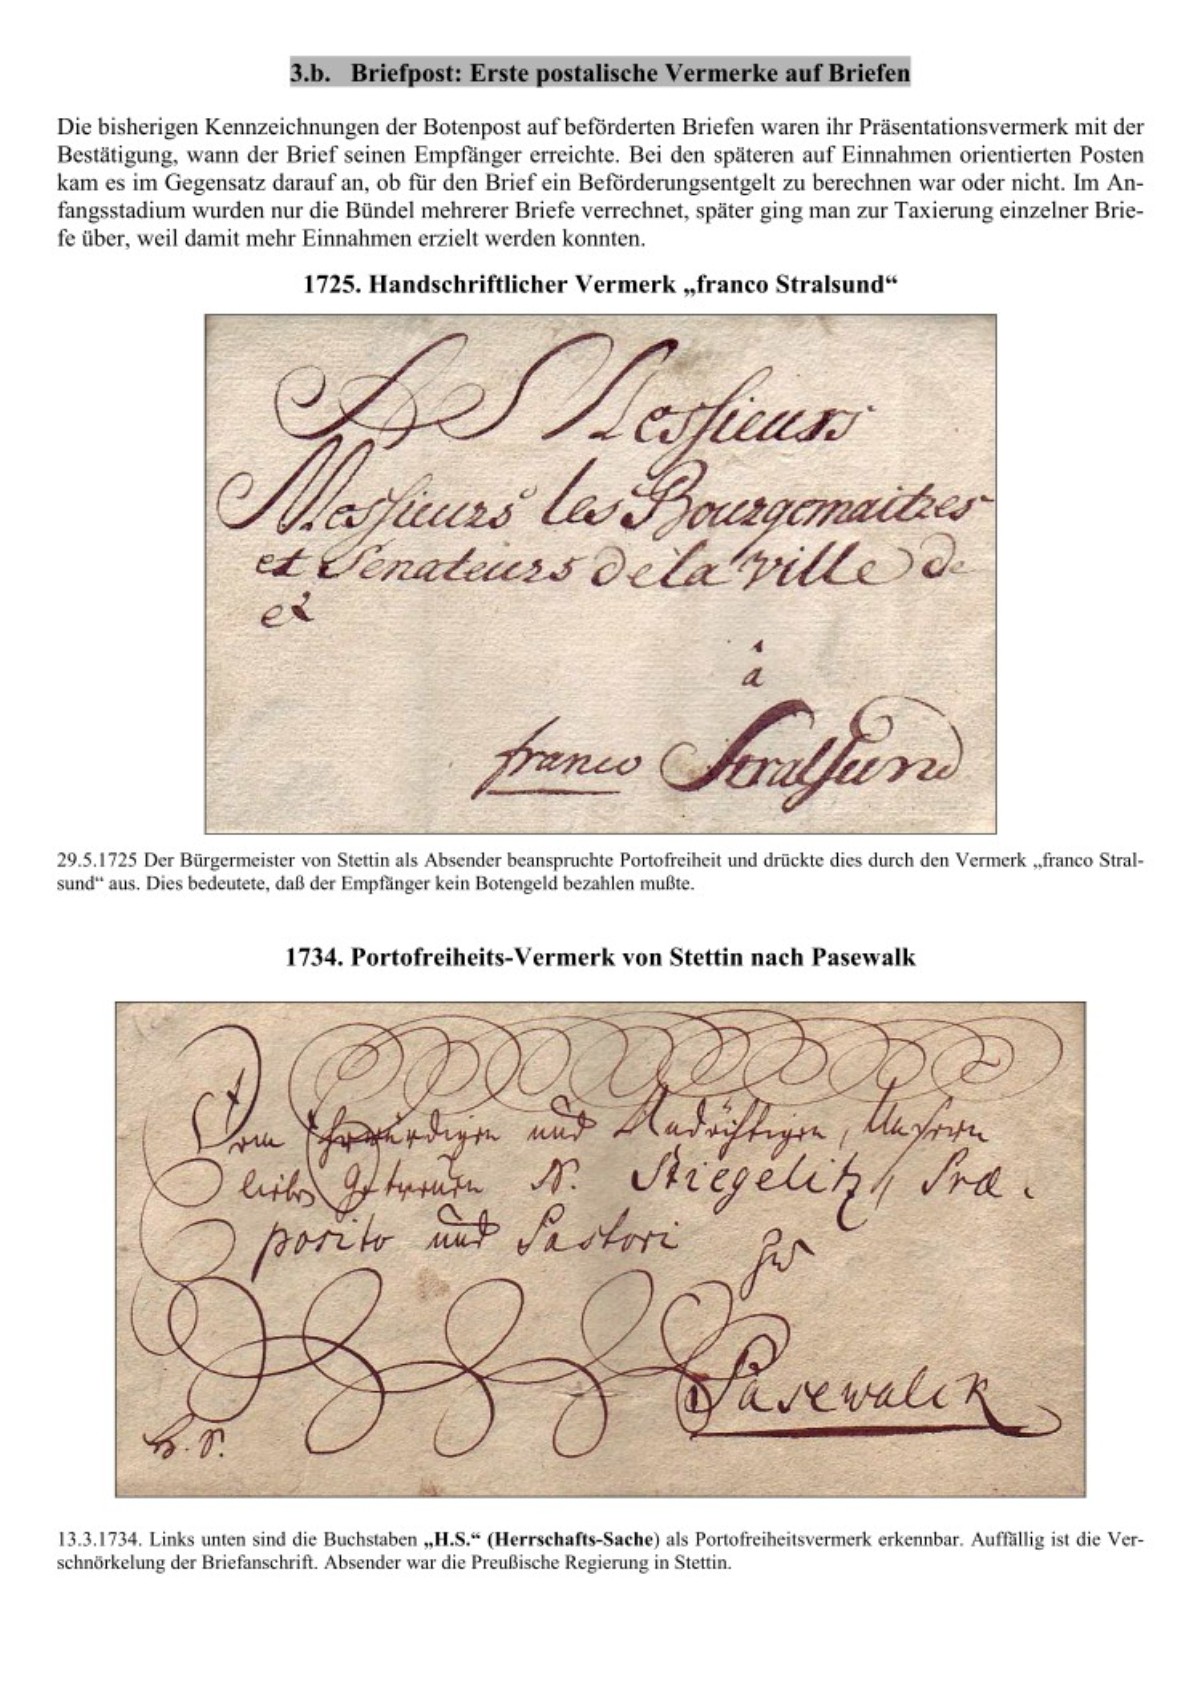 3.b. Briefpost: Erste postalische Vermerke auf Briefen
Die bisherigen Kennzeichnungen der Botenpost auf beförderten Briefen waren ihr Präsentationsvermerk mit der
Bestätigung, wann der Brief seinen Empfänger erreichte. Bei den späteren auf Einnahmen orientierten Posten
kam es im Gegensatz darauf an, ob für den Brief ein Beförderungsentgelt zu berechnen war oder nicht. Im An-
fangsstadium wurden nur die Bündel mehrerer Briefe verrechnet, später ging man zur Taxierung einzelner Brie-
fe über, weil damit mehr Einnahmen erzielt werden konnten.
1725. Handschriftlicher Vermerk „franco Stralsund“
A Messieurs
Messieurs les Bourgemaitres
et Senateurs de la ville de
et
à
franco Stralsund
29.5.1725 Der Bürgermeister von Stettin als Absender beanspruchte Portofreiheit und drückte dies durch den Vermerk „franco Stral-
sund“ aus. Dies bedeutete, daß der Empfänger kein Botengeld bezahlen mußte.
1734. Portofreiheits-Vermerk von Stettin nach Pasewalk
Dem Ehrwürdigen und Andächtigen, Unserm
lieben Getreuen N. Stiegelitz, Præ
posito und Pastori zu
Pasewalck
H. S.
13.3.1734. Links unten sind die Buchstaben „H.S.“ (Herrschafts-Sache) als Portofreiheitsvermerk erkennbar. Auffällig ist die Ver-
schnörkelung der Briefanschrift. Absender war die Preußische Regierung in Stettin.